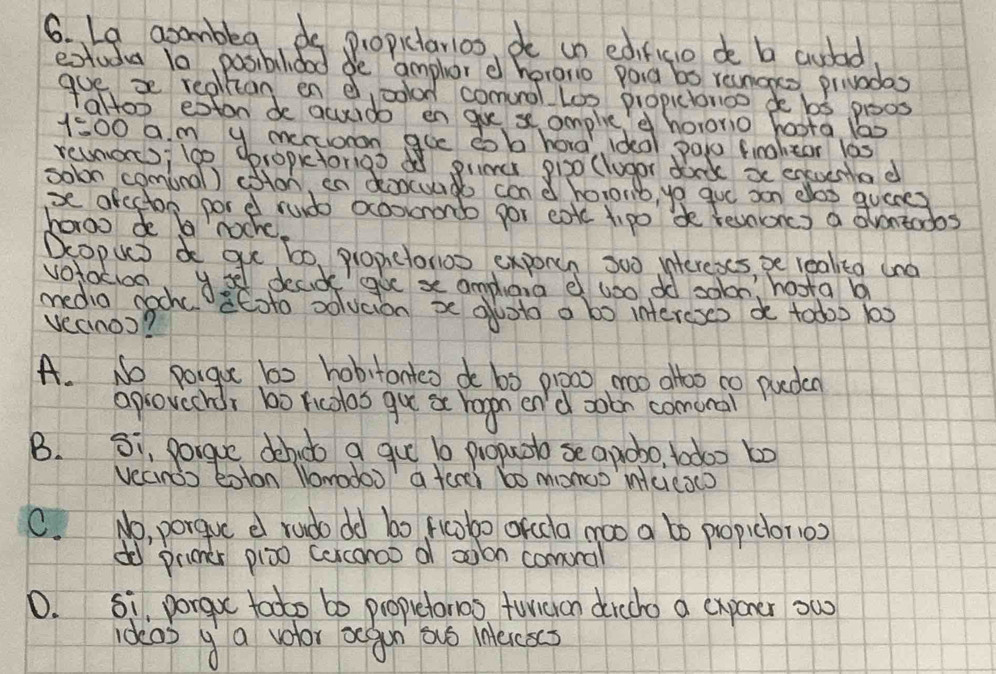 6. La asamblea de propietarios de un edificio de la ciudad,
estudia la posibilidad de ampliar el horario para las reuniones privadas
que se realizan en el salon comunal. Los propietarios de los pisos
altos estan de acuerdo en que se amplie el horario hasta las
1:00 a.m y mencionan que es la hora ideal para finalizar las
reuniones; los propietarios del primer piso (lugar donde se encuentra el
salon comunal) estan en desacuerdo con el horario, ya que son ellos quienes
se afectan por el ruido ocasionando por este tipo de reuniones a avanzadas
horas de la noche.
Despues de que los propietarios exponen sus intereses, se realiza una
votacion y se decide que se ampliara el uso del salon, hasta la
media noche ¿Esta solucion se ajusta a los intereses de todos los
vecinos?
A. No porque los habitantes de los pisos mas altos no pueden
aprovechar las fiestas que se hagan en el salon comunal
B. Si, porque debido a que la propuesta se aprobo, todos los
vecinos estan llamados a tener los mismos intereses
C. No, porque el ruido de las fiestas afecta mas a los propietarios
del primer piso cercanos al salon comunal
D. Si, porque todos los propietarios tuvieron derecho a exponer sus
ideas y a votar segun sus intereses